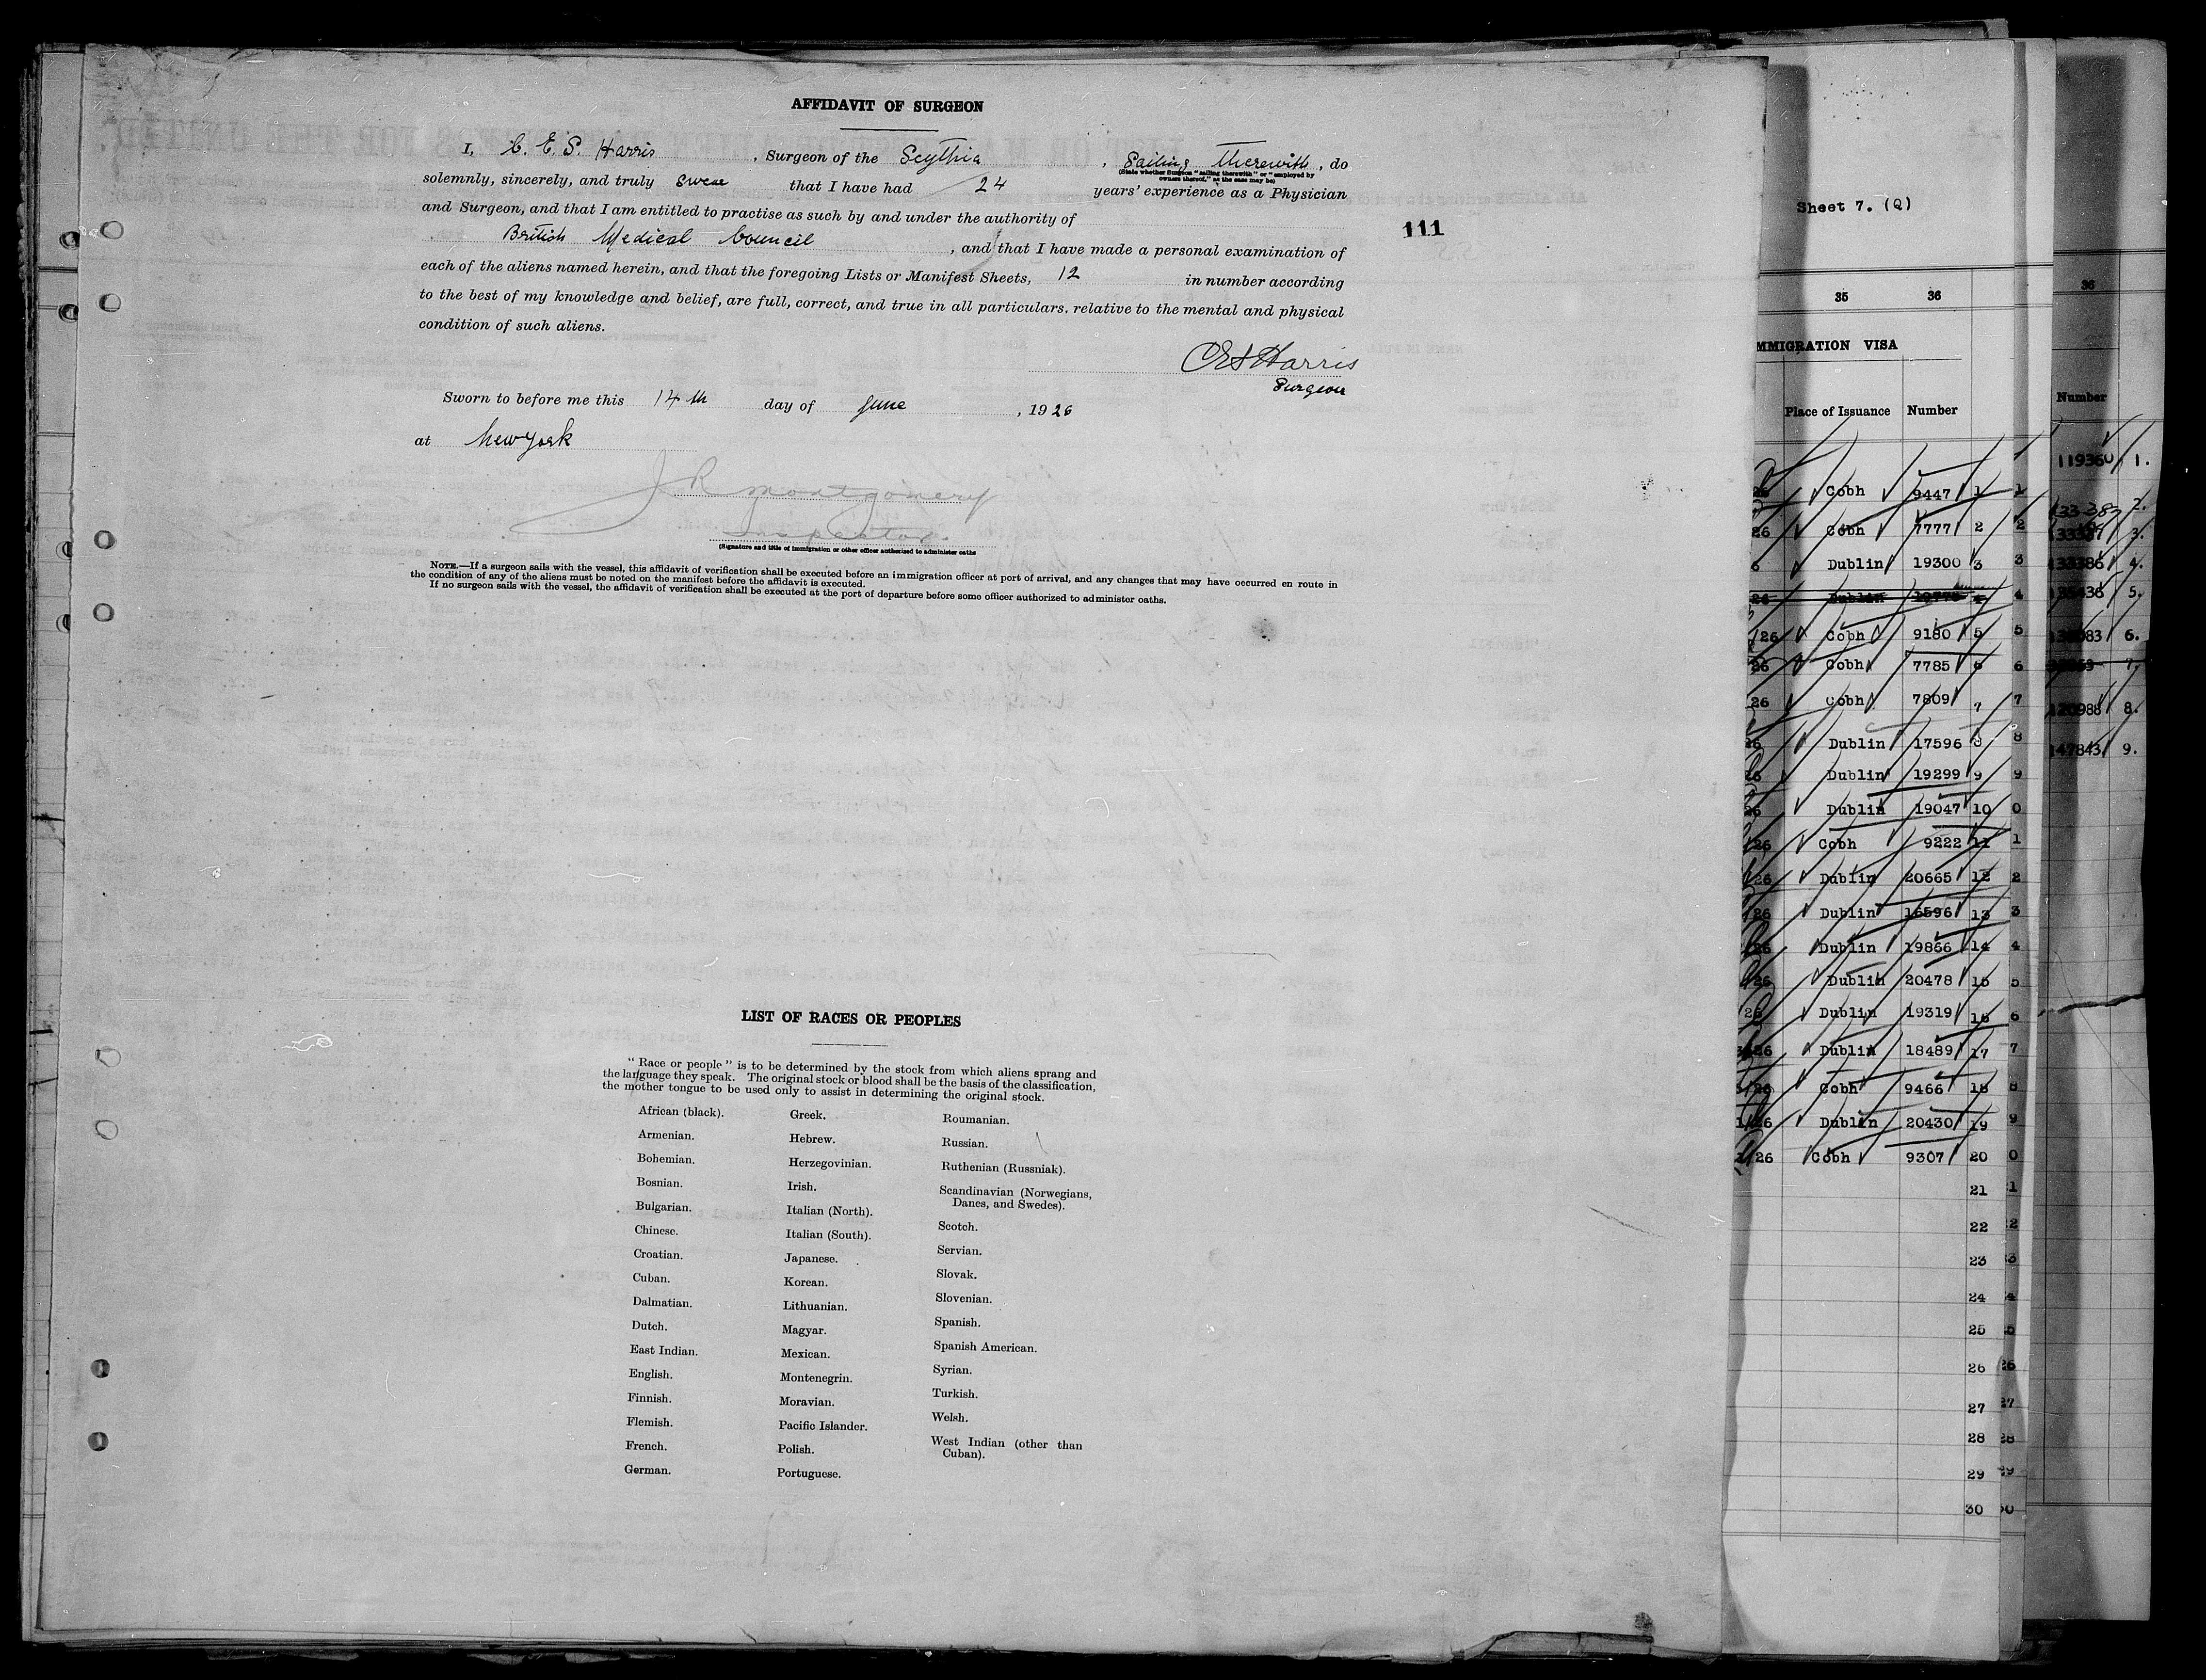 AFFIDAVIT OF SURGEON
I, C. E. S. Harris, Surgeon of the Scythia, Sailing therewith, do
(State whether Surgeon "sailing therewith" or "employed by
owners thereof," as the case may be)
solemnly, sincerely, and truly swear that I have had 24 years' experience as a Physician
and Surgeon, and that I am entitled to practise as such by and under the authority of
British Medical Council, and that I have made a personal examination of
each of the aliens named herein, and that the foregoing Lists or Manifest Sheets, 12 in number according
to the best of my knowledge and belief, are full, correct, and true in all particulars, relative to the mental and physical
condition of such aliens.
111
CES Harris
Surgeon
Sworn to before me this 14th day of June, 1926
at New York
J R Montgomery
Inspector.
(Signature and title of immigration or other officer authorized to administer oaths
NOTE.—If a surgeon sails with the vessel, this affidavit of verification shall be executed before an immigration officer at port of arrival, and any changes that may have occurred en route in
the condition of any of the aliens must be noted on the manifest before the affidavit is executed.
If no surgeon sails with the vessel, the affidavit of verification shall be executed at the port of departure before some officer authorized to administer oaths.
LIST OF RACES OR PEOPLES
"Race or people" is to be determined by the stock from which aliens sprang and
the language they speak. The original stock or blood shall be the basis of the classification,
the mother tongue to be used only to assist in determining the original stock.
African (black).
Armenian.
Bohemian.
Bosnian.
Bulgarian.
Chinese.
Croatian.
Cuban.
Dalmatian.
Dutch.
East Indian.
English.
Finnish.
Flemish.
French.
German.
Greek.
Hebrew.
Herzegovinian.
Irish.
Italian (North).
Italian (South).
Japanese.
Korean.
Lithuanian.
Magyar.
Mexican.
Montenegrin.
Moravian.
Pacific Islander.
Polish.
Portuguese.
Roumanian.
Russian.
Ruthenian (Russniak).
Scandinavian (Norwegians,
Danes, and Swedes).
Scotch.
Servian.
Slovak.
Slovenian.
Spanish.
Spanish American.
Syrian.
Turkish.
Welsh.
West Indian (other than
Cuban).
Sheet 7. (Q)
35 36
MMIGRATION VISA
Place of Issuance Number
26 Cobh 9447 1 1
26 Cobh 7777 2 2
6 Dublin 19300 3 3
26 Dublin 4 4
26 Cobh 9180 5 5
26 Cobh 7785 6 6
26 Cobh 7809 7 7
26 Dublin 17596 8 8
26 Dublin 19299 9 9
26 Dublin 19047 10 0
26 Cobh 9222 11 1
26 Dublin 20665 12 2
26 Dublin 16596 13 3
26 Dublin 19866 14 4
26 Dublin 20478 15 5
26 Dublin 19319 16 6
26 Dublin 18489 17 7
26 Cobh 9466 18 8
26 Dublin 20430 19 9
26 Cobh 9307 20 0
21 1
22 2
23 3
24 4
25 5
26 26
27 27
28 28
29 29
30 30
36
Number
119360 1.
2.
3.
133386 4.
135436 5.
6.
7.
120988 8.
147843 9.